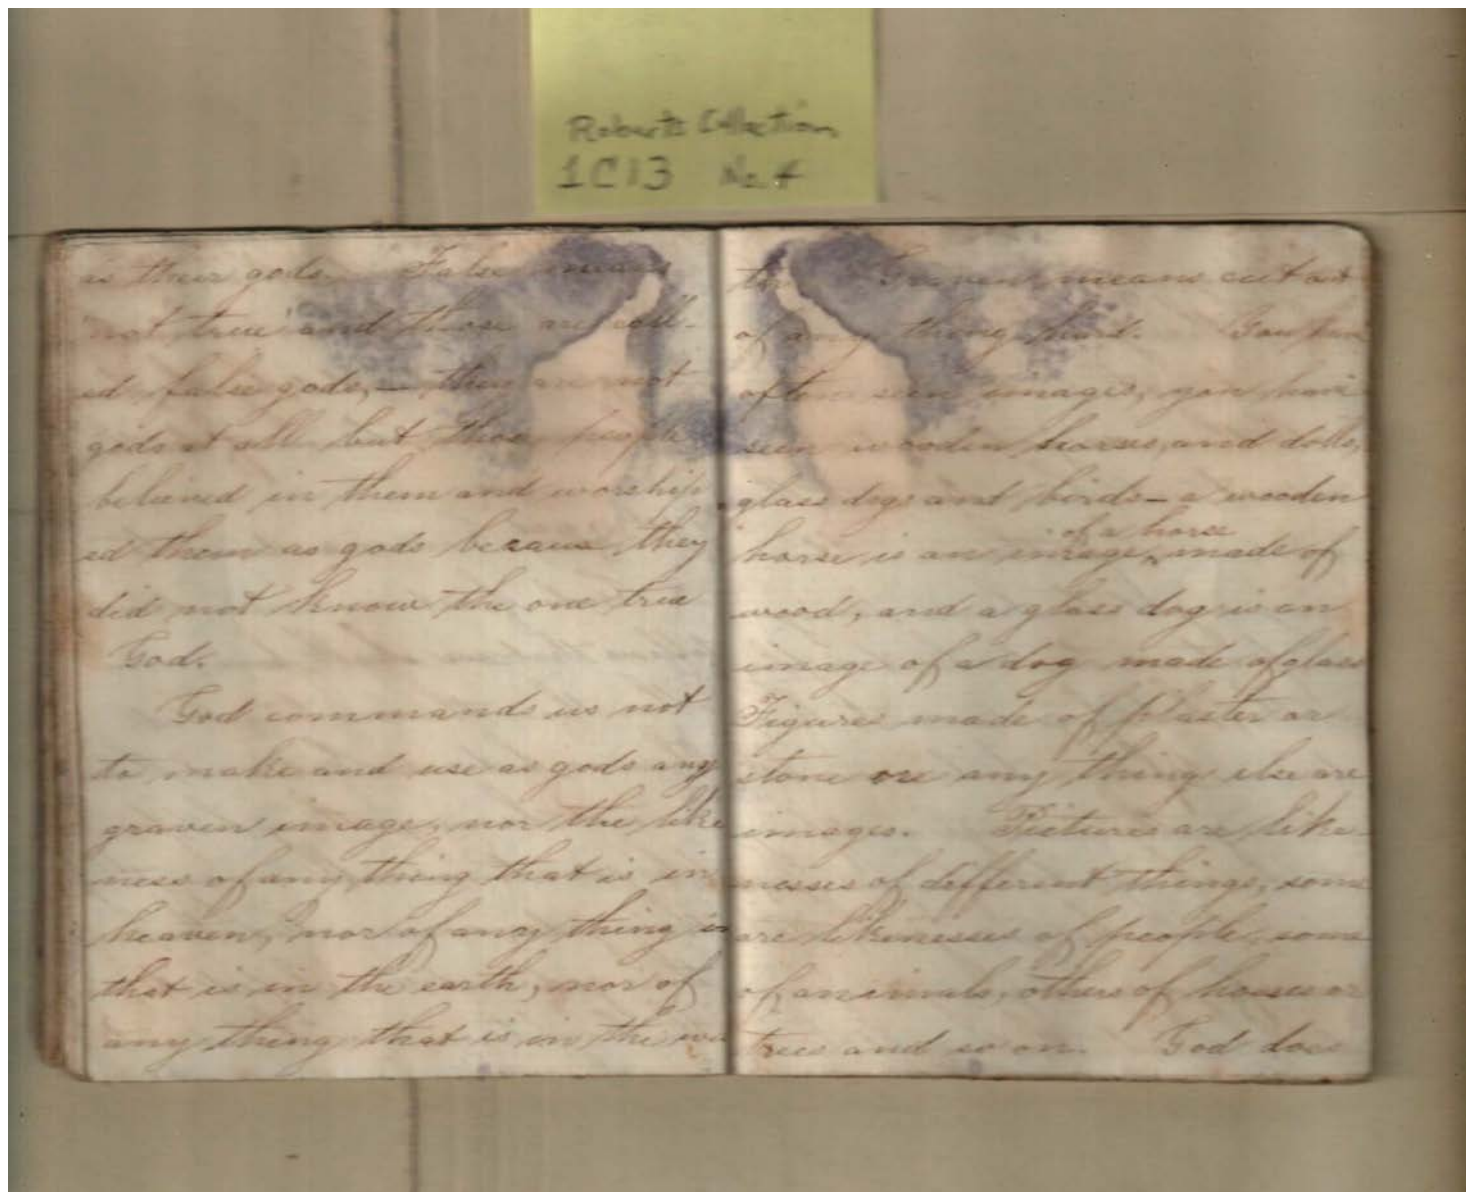 Roberts Collection
1C13 No. 4
as their gods. False means
"not true" and those are call-
ed false gods, — they are not
gods at all but those people
believed in them and worship
ed them as gods because they
did not know the one true
God.
God commands us not
to make and use as gods any
graven image, nor the like
ness of any thing that is in
heaven, nor of any thing in
that is in the earth, nor of
any thing that is in the wa
ter. Graven means cut out
of any thing hard. You have
often seen images, you have
seen wooden horses, and dolls,
glass dogs and birds — a wooden
of a horse
horse is an image, made of
wood, and a glass dog is an
image of a dog made of glass
Figures made of plaster or
stone or any thing else are
images. Pictures are like-
nesses of different things, some
are likenesses of people, some
of animals, others of houses or
trees and so on. God does